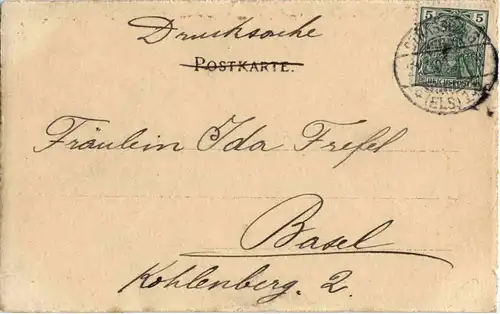 Drucksache
POSTKARTE.
5 5
(ELS)
Fräulein Ida Frefel
Basel
Kohlenberg. 2.